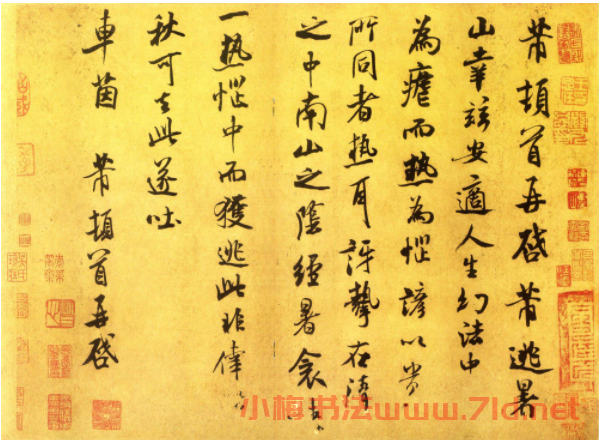 芾頓首再啓芾逃暑
山幸兹安適人生幻法中
為瘧而熱為惱諺以貴
所同者熱耳訝挈在清
之中南山之陰經暑衾
一熱惱中而獲逃此非倖
秋可去此遂吐
車茵 芾頓首再啓
小梅书法www.7ld.net